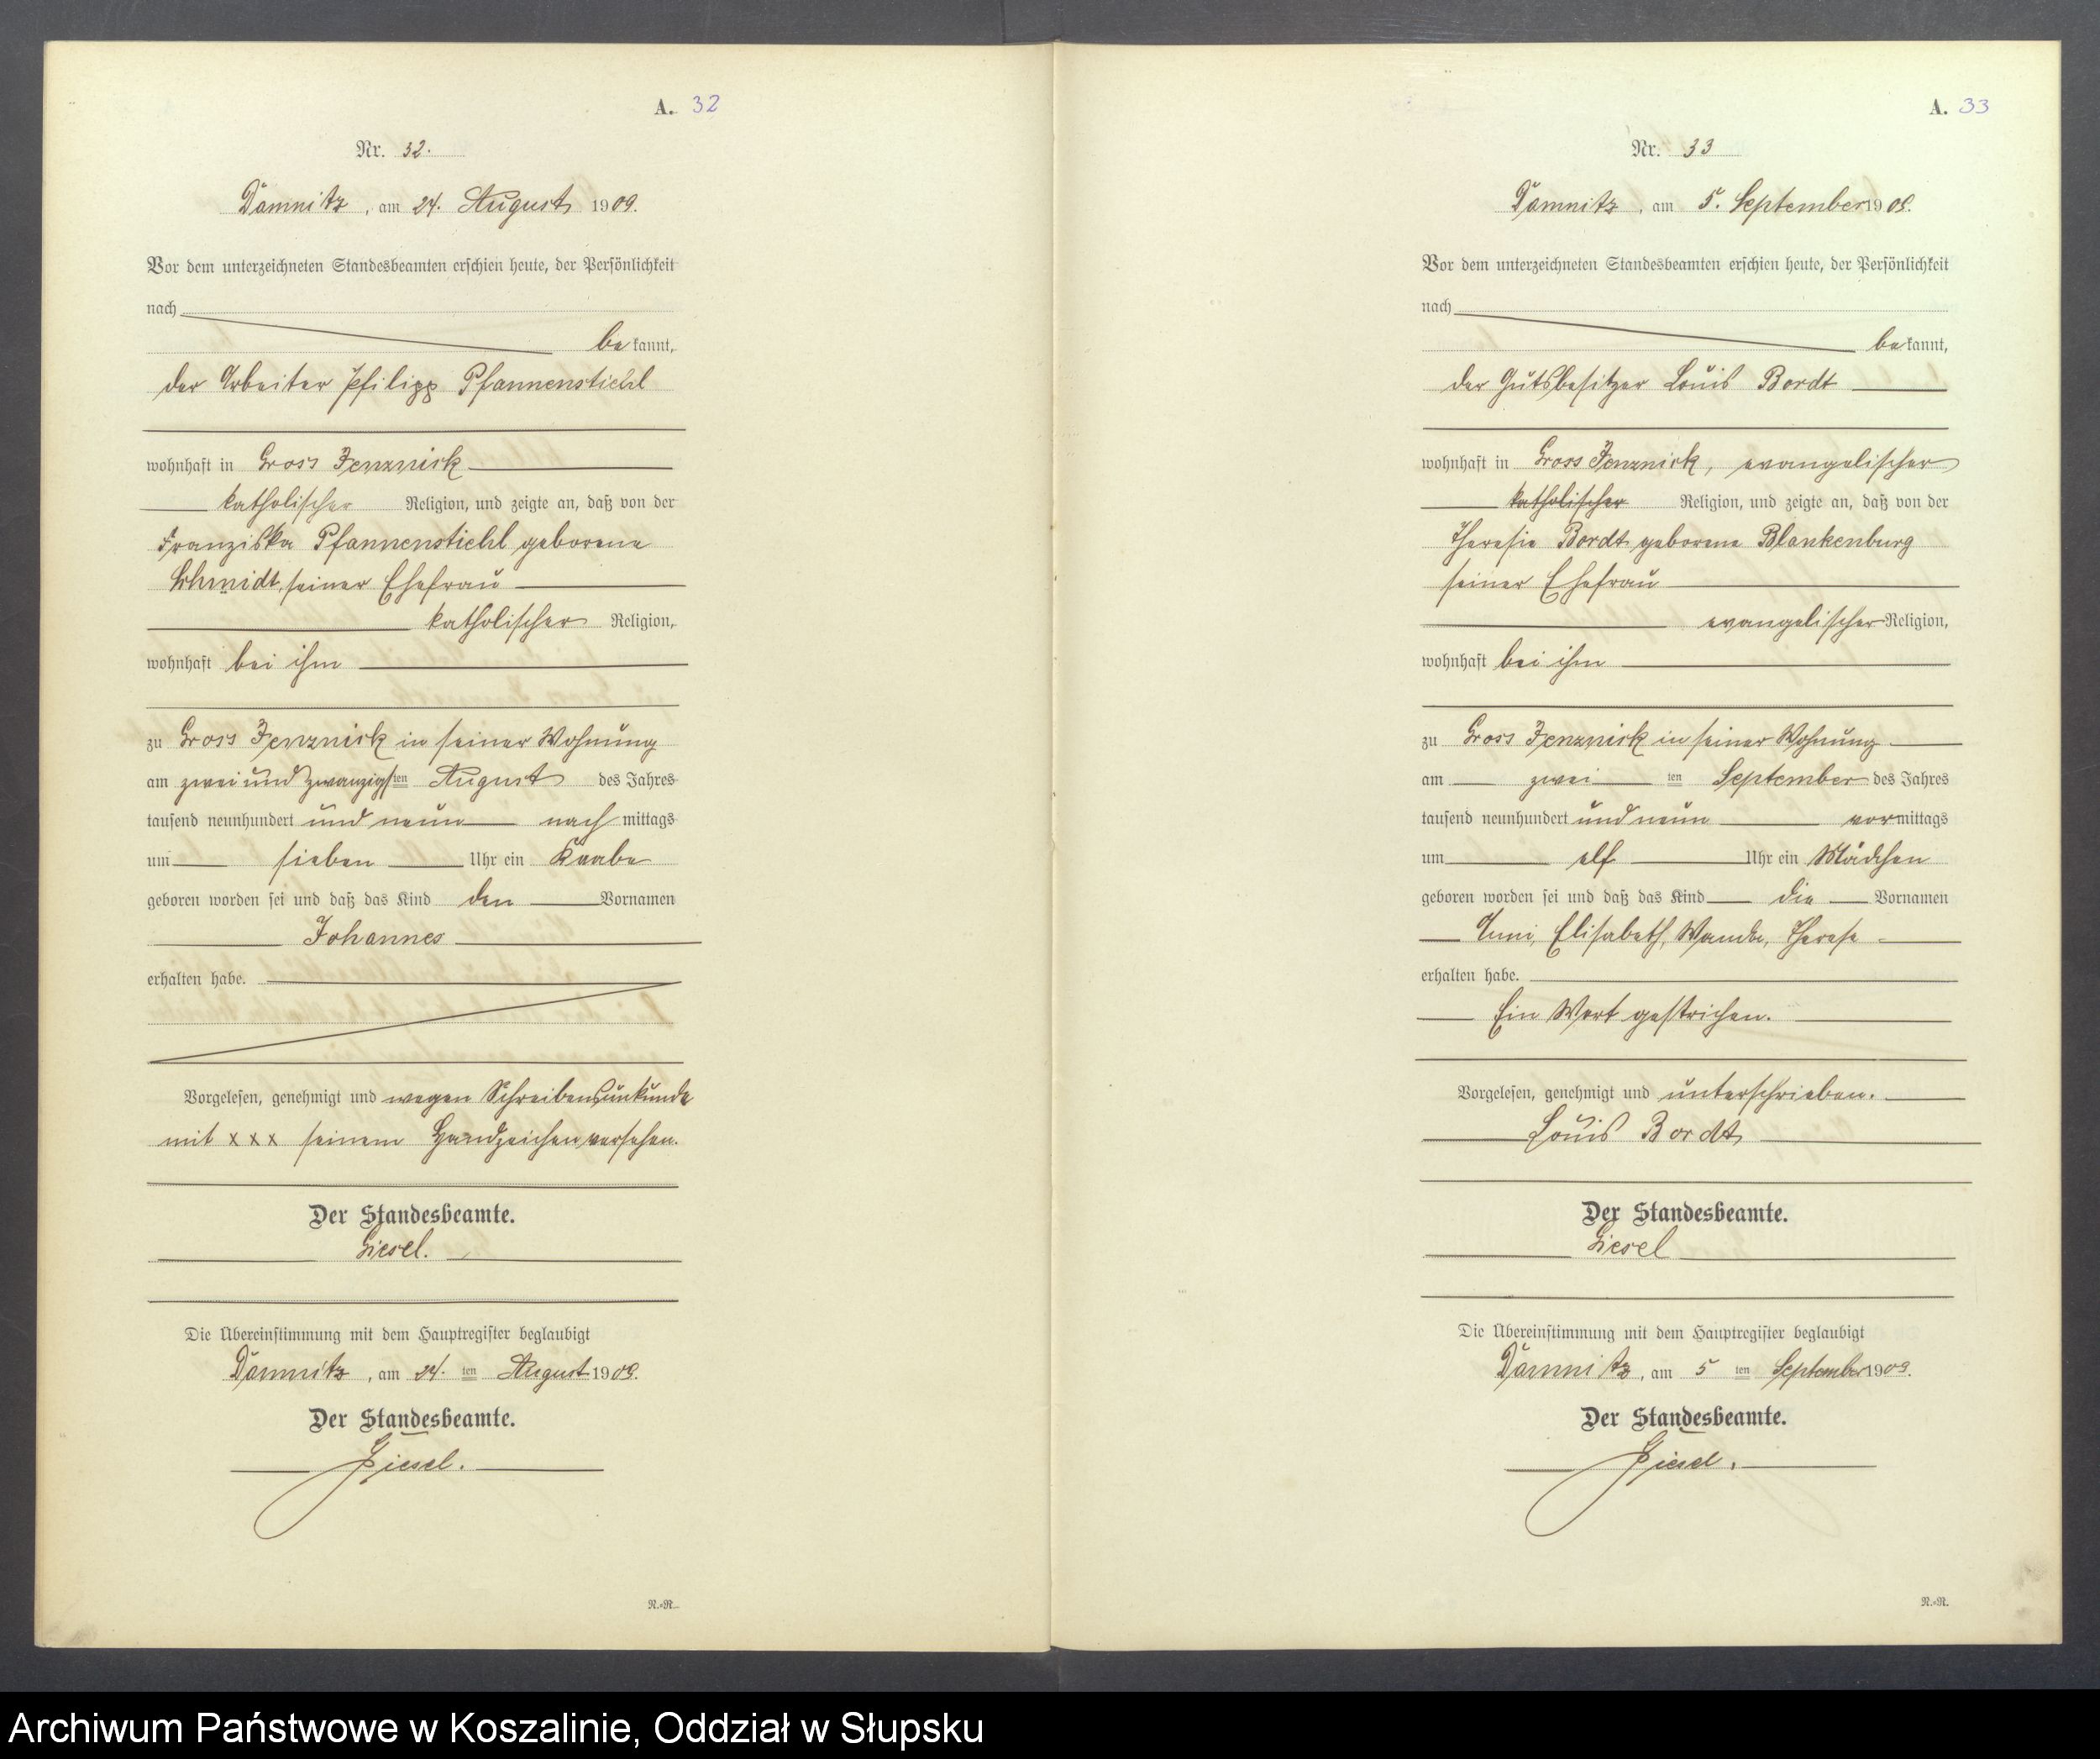 A. 32
Nr. 32.
Damnitz, am 24. August 1909.
Vor dem unterzeichneten Standesbeamten erschien heute, der Persönlichkeit
nach
be kannt,
der Arbeiter Philipp Pfannenstiehl
wohnhaft in Gross Jenznick
katholischer Religion, und zeigte an, daß von der
Franziska Pfannenstiehl geborene
Schmidt, seiner Ehefrau
katholischer Religion,
wohnhaft bei ihm
zu Gross Jenznick in seiner Wohnung
am zwei und zwanzigsten August des Jahres
tausend neunhundert und neun nach mittags
um sieben Uhr ein Knabe
geboren worden sei und daß das Kind den Vornamen
Johannes
erhalten habe.
Vorgelesen, genehmigt und wegen Schreibensunkunde
mit x x x seinem Handzeichen versehen.
Der Standesbeamte.
Giesel.
Die Übereinstimmung mit dem Hauptregister beglaubigt
Damnitz, am 24. ten August 1909.
Der Standesbeamte.
Giesel.
N.=R.
A. 33
Nr. 33
Damnitz, am 5. September 1909.
Vor dem unterzeichneten Standesbeamten erschien heute, der Persönlichkeit
nach
be kannt,
der Gutsbesitzer Louis Bordt
wohnhaft in Gross Jenznick, evangelischer
katholischer Religion, und zeigte an, daß von der
Theresie Bordt geborene Blankenburg
seiner Ehefrau
evangelischer Religion,
wohnhaft bei ihm
zu Gross Jenznick in seiner Wohnung
am zwei ten September des Jahres
tausend neunhundert und neun vor mittags
um elf Uhr ein Mädchen
geboren worden sei und daß das Kind die Vornamen
Elisabeth, Wanda, Therese
erhalten habe.
Ein Wort gestrichen.
Vorgelesen, genehmigt und unterschrieben.
Louis Bordt
Der Standesbeamte.
Giesel
Die Übereinstimmung mit dem Hauptregister beglaubigt
Damnitz, am 5 ten September 1909.
Der Standesbeamte.
Giesel.
N.=R.
Archiwum Państwowe w Koszalinie, Oddział w Słupsku